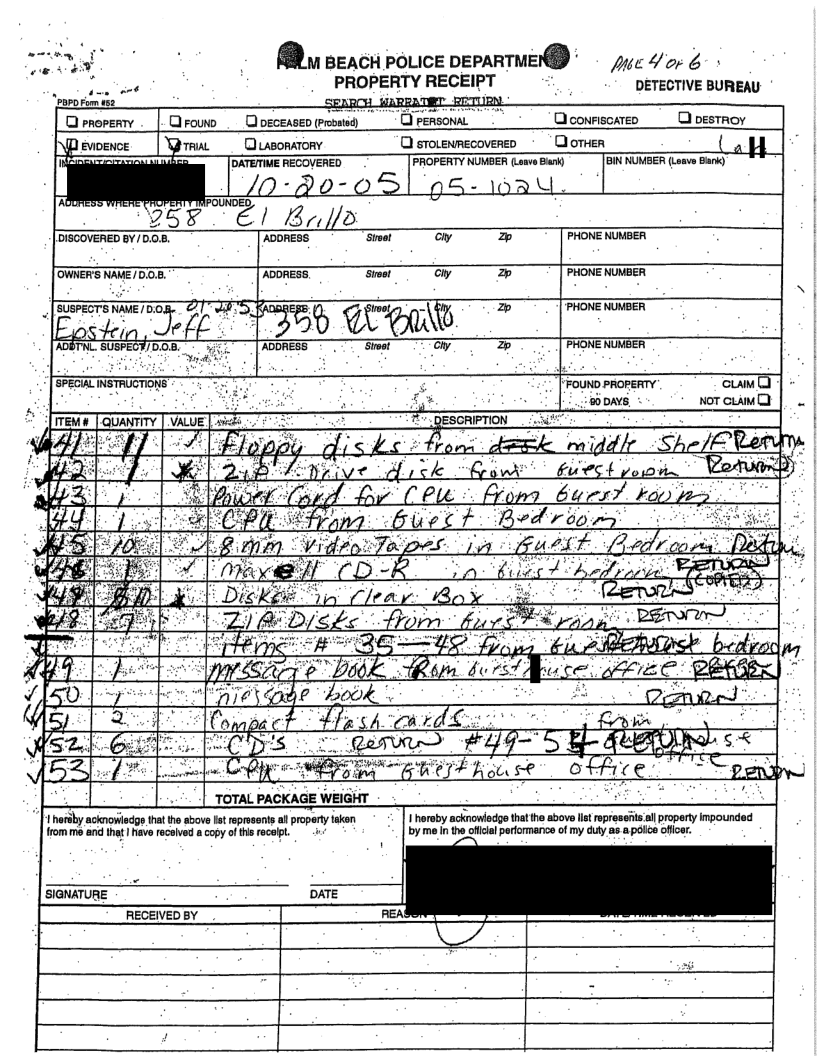 PALM BEACH POLICE DEPARTMENT
PAGE 4 OF 6
PROPERTY RECEIPT
DETECTIVE BUREAU
PBPD Form #52
SEARCH WARRANT RETURN
PROPERTY FOUND DECEASED (Probated) PERSONAL CONFISCATED DESTROY
EVIDENCE TRIAL LABORATORY STOLEN/RECOVERED OTHER
INCIDENT/CITATION NUMBER DATE/TIME RECOVERED PROPERTY NUMBER (Leave Blank) BIN NUMBER (Leave Blank)
10-20-05 05-1024
ADDRESS WHERE PROPERTY IMPOUNDED
358 El Brillo
DISCOVERED BY / D.O.B. ADDRESS Street City Zip PHONE NUMBER
OWNER'S NAME / D.O.B. ADDRESS Street City Zip PHONE NUMBER
SUSPECT'S NAME / D.O.B. 01-20-53 ADDRESS Street City Zip PHONE NUMBER
Epstein, Jeff 358 El Brillo
ADDT'NL. SUSPECT / D.O.B. ADDRESS Street City Zip PHONE NUMBER
SPECIAL INSTRUCTIONS FOUND PROPERTY CLAIM
90 DAYS NOT CLAIM
ITEM # QUANTITY VALUE DESCRIPTION
41 11 Floppy disks from desk middle Shelf Return
42 1 ZIP Drive disk from Guest room Return
43 1 Power Cord for CPU from Guest room
44 1 CPU from Guest Bedroom
45 10 8mm Video Tapes in Guest Bedroom Return
46 1 Maxell CD-R in Guest bedroom RETURN
Disks in Clear Box RETURN (COPIED)
48 7 ZIP Disks from Guest room RETURN
items # 35-48 from bedroom
49 1 message book from office RETURN
50 1 message book RETURN
51 2 Compact flash cards from
52 6 CD's RETURN #49- office
53 1 CPU from Guesthouse office RETURN
TOTAL PACKAGE WEIGHT
I hereby acknowledge that the above list represents all property taken
from me and that I have received a copy of this receipt.
I hereby acknowledge that the above list represents all property impounded
by me in the official performance of my duty as a police officer.
SIGNATURE DATE
RECEIVED BY REASON